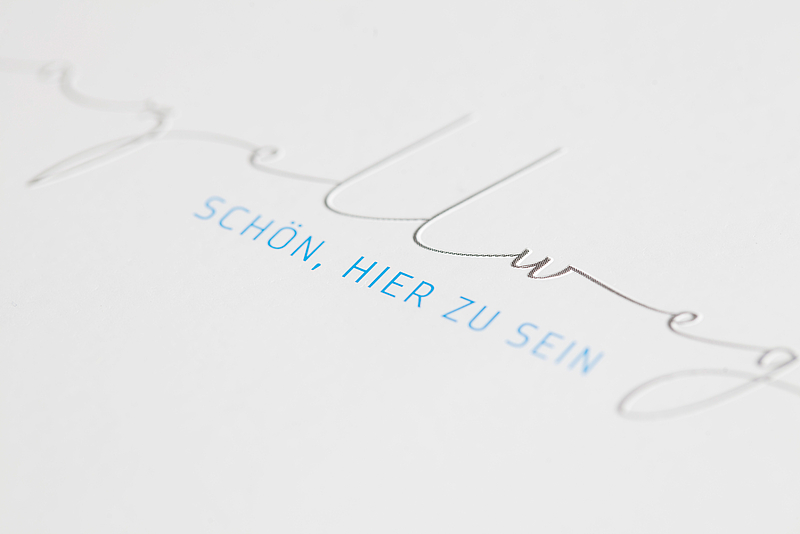 agellweg
SCHÖN, HIER ZU SEIN